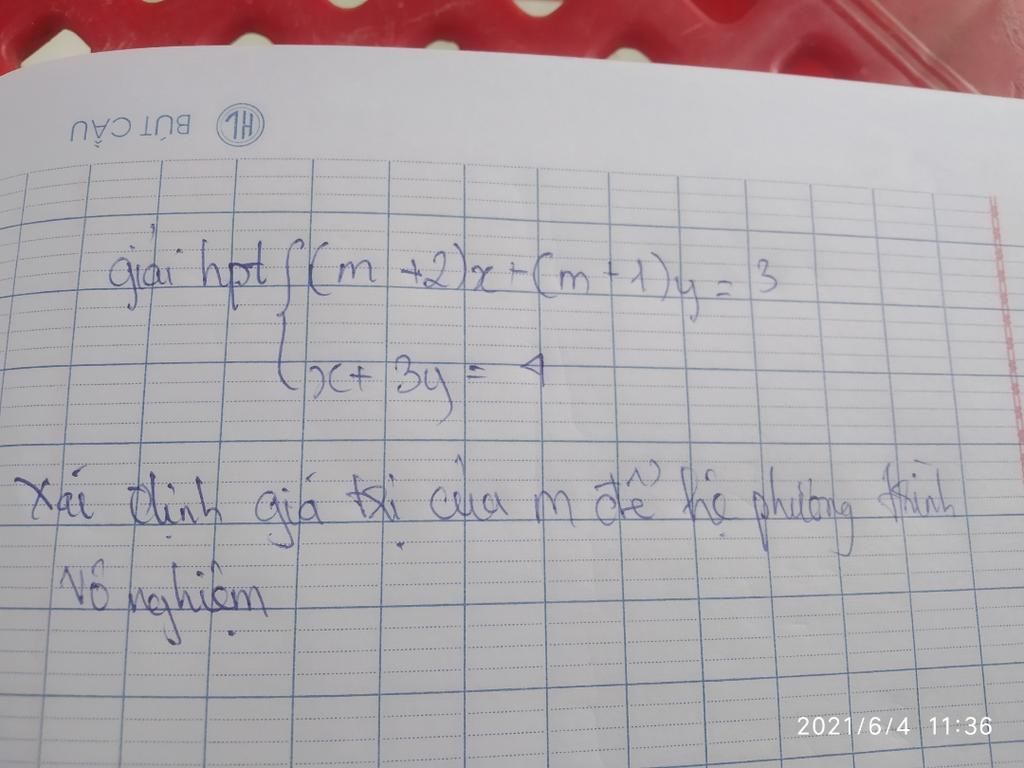 HL BÚT CẦU
giải hpt { (m +2)x + (m+1)y = 3
x + 3y = 4
Xác định giá trị của m để hệ phương trình
vô nghiệm
2021/6/4 11:36